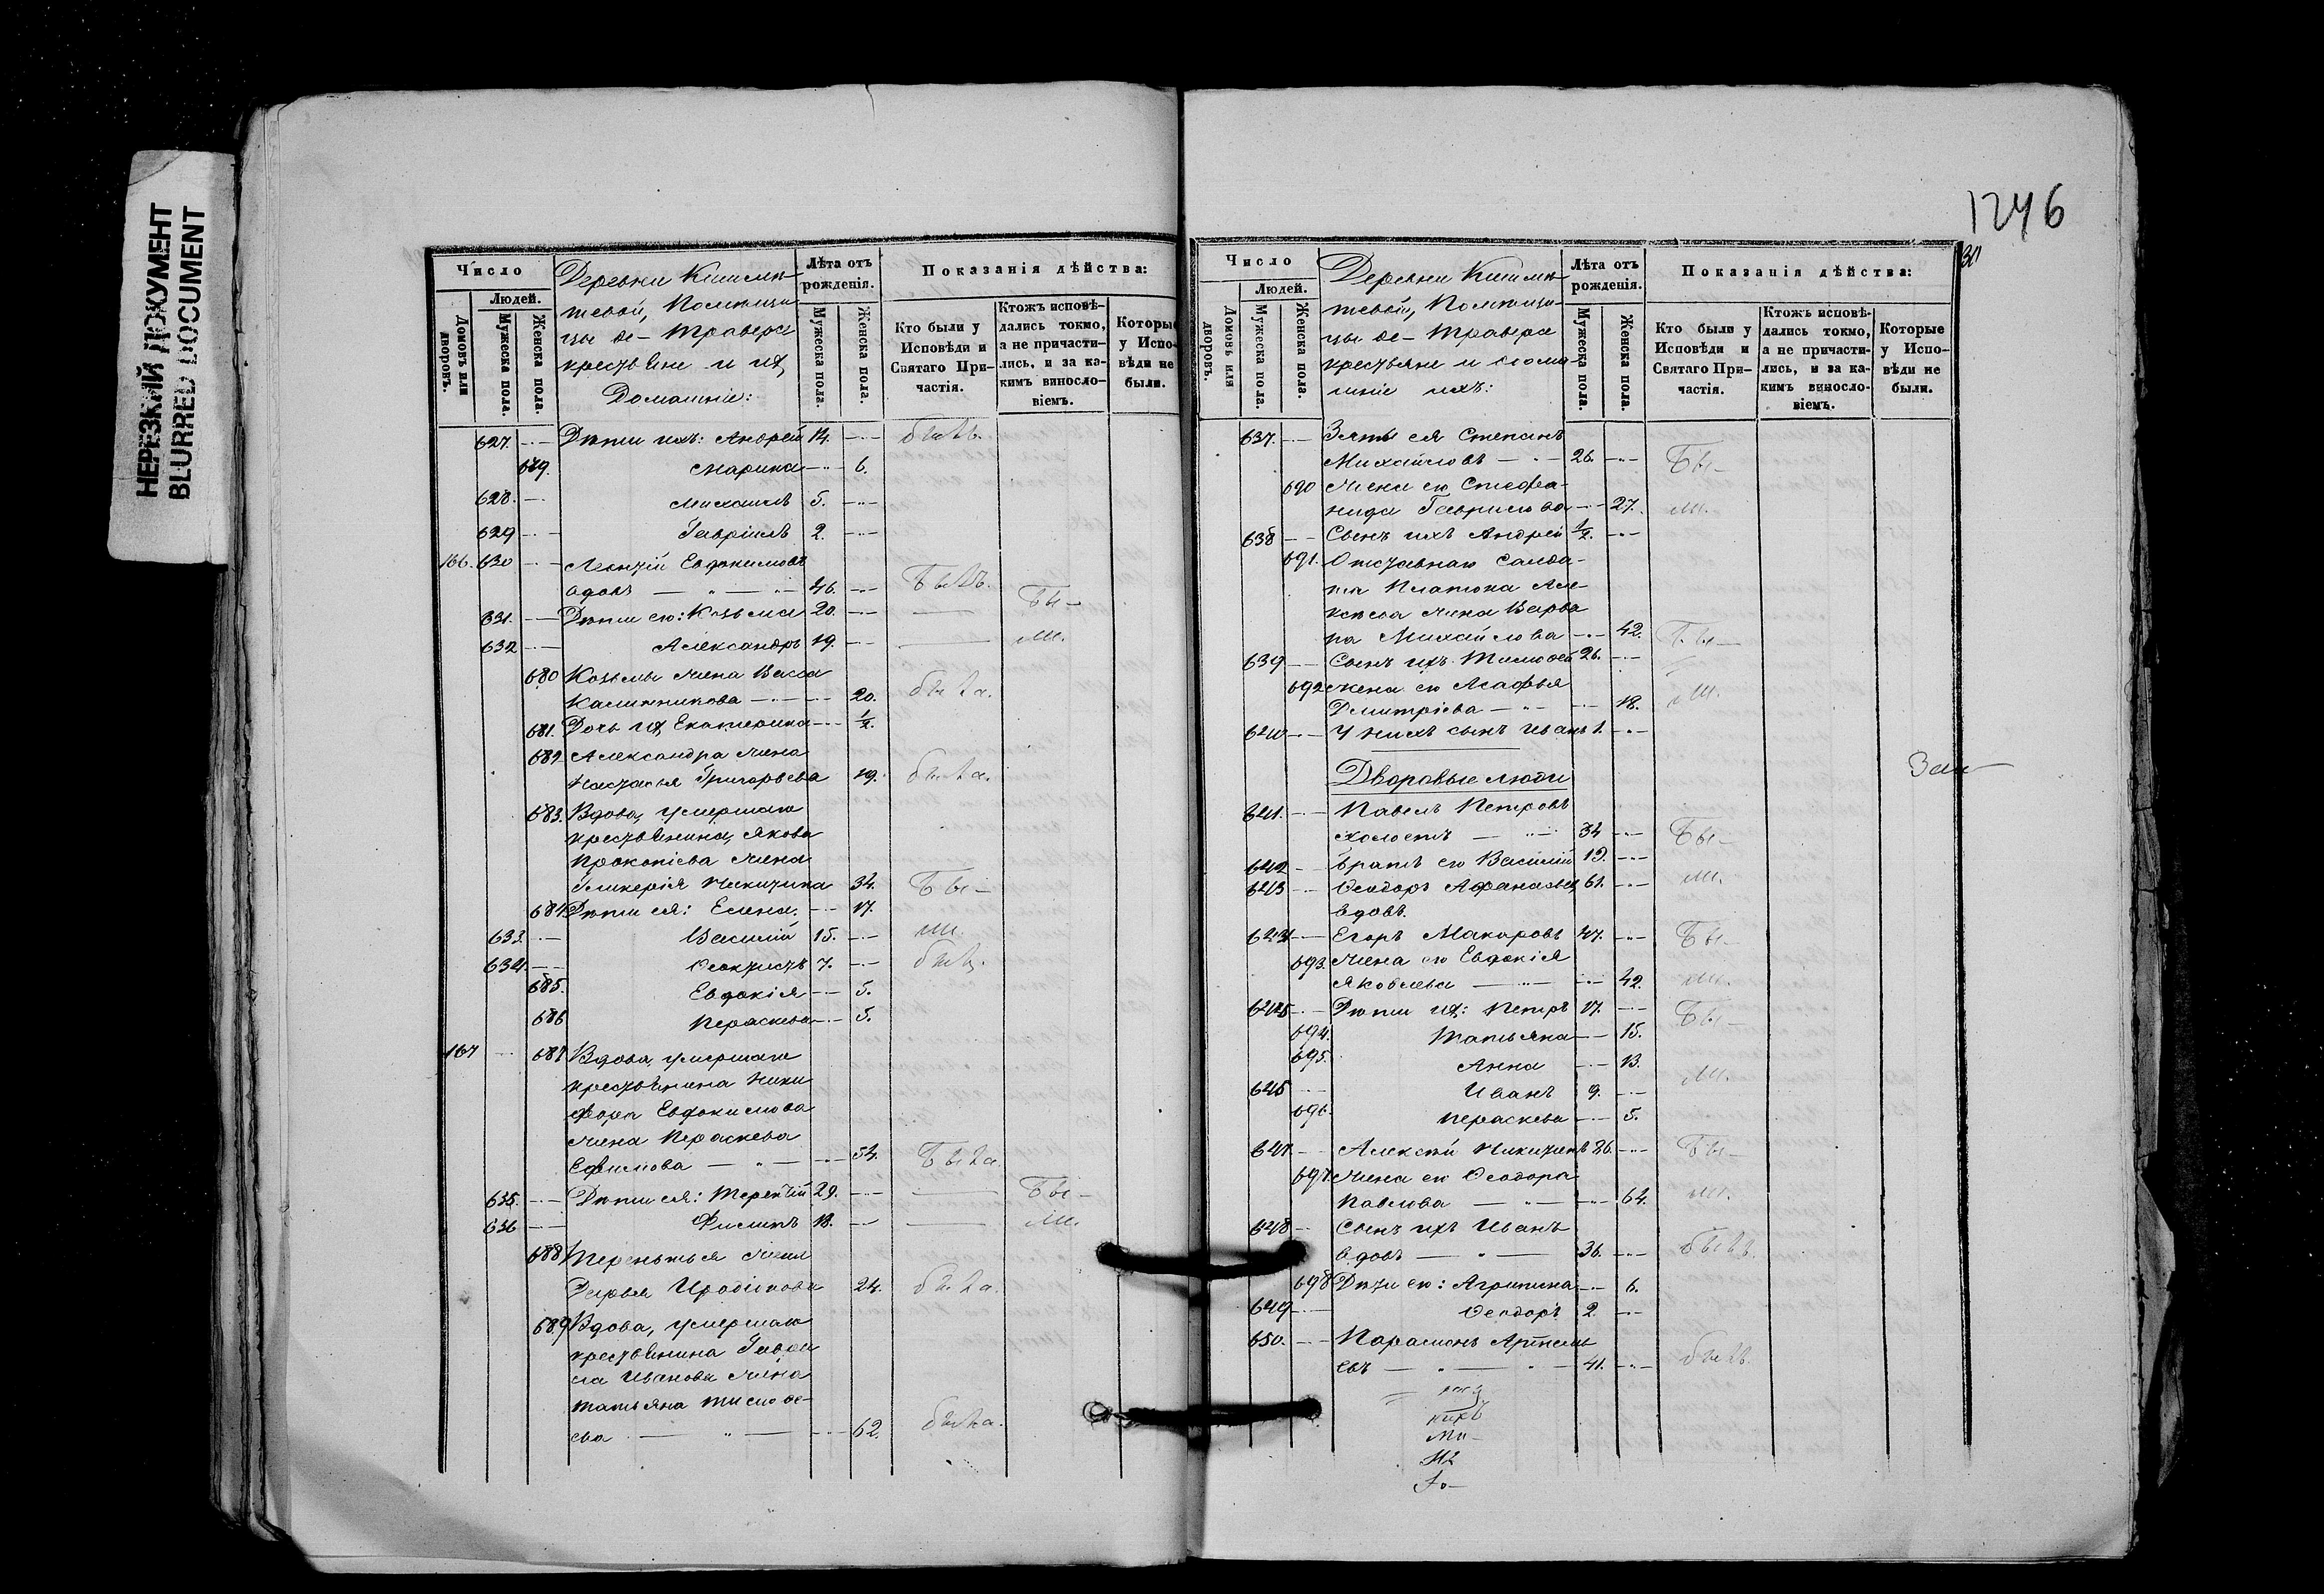 НЕРЕЗКИЙ ДОКУМЕНТ
BLURRED DOCUMENT
Число
Людей.
Домовъ или дворовъ.
Мужеска пола.
Женска пола.
Деревни
тевой, Помѣщи
цы де-Траверсе
крестьяне и их
Домашніе:
Лѣта отъ рожденія.
Мужеска пола.
Женска пола.
Показанія дѣйства:
Кто были у Исповѣди и Святаго Причастія.
Ктожъ исповѣдались токмо, а не причастились, и за какимъ винословіемъ.
Которые у Исповѣди не были.
627. Дѣти ихъ: Андрей 14. былъ.
679. Марина 6.
628. Михаилъ 5.
629 Гавріилъ 2.
166. 630 Леонтій Евдокимовъ
вдовъ 46. Былъ.
631. Дѣти его: Козьма 20. Бы-
632 Александръ 19. ли.
680 Козьмы жена Васса
Калинникова 20. была.
681. Дочь их Екатерина 1/2.
682 Александра жена
Настасья Григорьева 19. была.
683. Вдова, умершаго
крестьянина, Якова
Прокопіева жена
Гликерія Никитина 34. Бы-
684 Дѣти ея: Елена. 17.
633. Василій 15. ли
634. Феоктистъ 7. былъ.
685. Евдокія 5.
686 Параскева 5.
167 687 Вдова, умершаго
крестьянина Ники
фора Евдокимова
жена Параскева
Ефимова 54. Была
635. Дѣти ея: Терентій 29. Бы-
636 Филипъ 18. ли.
688 Терентья жена
Дарья Иродіонова 24. была.
689 Вдова, умершаго
крестьянина Гаври
ла Иванова жена
Татьяна Тимофе-
ева 62. была.
1246
30
Число
Людей.
Домовъ или дворовъ.
Мужеска пола.
Женска пола.
Деревни
тевой, Помѣщи-
цы де-Траверсе
крестьяне и дома-
шніе ихъ:
Лѣта отъ рожденія.
Мужеска пола.
Женска пола.
Показанія дѣйства:
Кто были у Исповѣди и Святаго Причастія.
Ктожъ исповѣдались токмо, а не причастились, и за какимъ винословіемъ.
Которые у Исповѣди не были.
637. Зять ея Степанъ
Михайловъ 26. Бы-
690 Жена его Стефа-
нида Гаврилова 27. ли.
638 Сынъ ихъ Андрей 1/2.
691. Отставнаго Салда-
та Платона Але-
ксѣева жена Варва
ра Михайлова 42. Бы-
639 Сынъ ихъ Тимофей 26.
692 жена его Агафья
Дмитріева 18. ли.
640 У нихъ сынъ Иванъ 1.
Дворовые люди
641. Павелъ Петровъ
холостъ 34 Бы-
642 братъ его Василій 19.
643 Феодоръ Афанасьевъ 61. ли.
вдовъ.
644 Егоръ Макаровъ 47. Бы-
693. Жена его Евдокія
Яковлева 42. ли.
645 Дѣти их: Петръ 17. Бы-
694. Татьяна 15.
695. Анна 13.
646 Иванъ 9. ли.
696. Параскева 5.
647. Алексѣй Никитинъ 86. Бы-
697. Жена его Феодора
Павлова 64. ли.
648 Сынъ ихъ Иванъ
вдовъ 36. былъ.
698 Дѣти его: Агрипина 6.
649 Феодоръ 2.
650. Парамонъ
евъ 41. былъ.